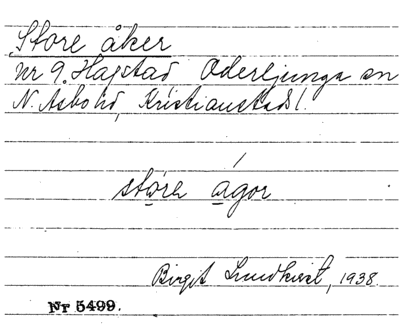 Store åker
nr 9. Hagstad Oderljunga sn
N. Åsbo hd, Kristianstads l.
store ågor
Birgit Lundkvist, 1938.
Nr 5499.